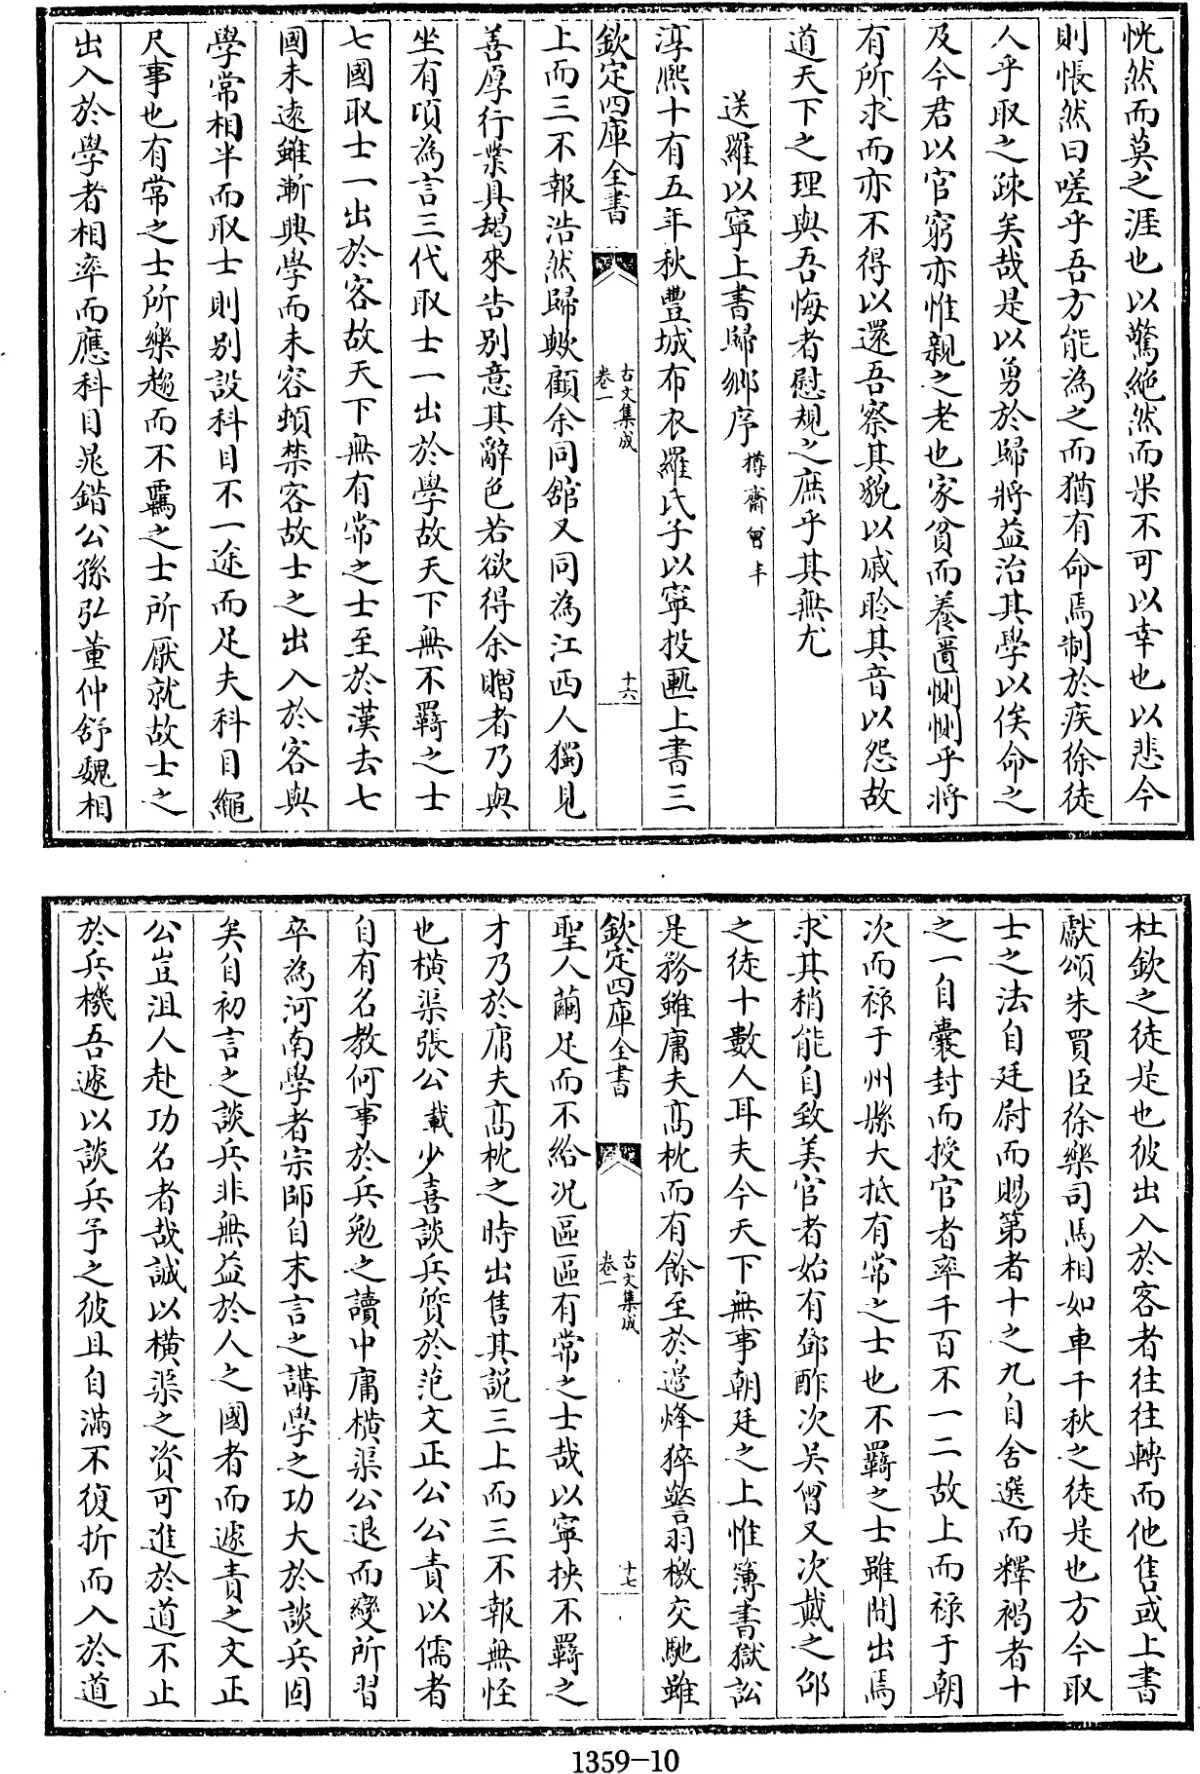 恍然而莫之涯也以驚絶然而果不可以幸也以悲今
則悵然曰嗟乎吾方能為之而猶有命焉制於疾徐徒
人乎取之疎矣哉是以勇於歸將益治其學以俟命之
及今君以官窮亦惟親之老也家貧而養匱惻惻乎將
有所求而亦不得以還吾察其貌以戚聆其音以怨故
道天下之理與吾悔者慰規之庶乎其無尤
送羅以寧上書歸鄉序 樽齋曾丰
淳熙十有五年秋豐城布衣羅氏子以寧投匭上書三
欽定四庫全書 古文集成 卷一 十六
上而三不報浩然歸歟顧余同舘又同為江西人獨見
善厚行業具朅來告别意其辭色若欲得余贈者乃與
坐有頃為言三代取士一出於學故天下無不羈之士
七國取士一出於客故天下無有常之士至於漢去七
國未遠雖漸興學而未容頓禁客故士之出入於客與
學常相半而取士則别設科目不一途而足夫科目繩
尺事也有常之士所樂趨而不羈之士所厭就故士之
出入於學者相率而應科目晁錯公孫弘董仲舒魏相
杜欽之徒是也彼出入於客者往往轉而他售或上書
獻頌朱買臣徐樂司馬相如車千秋之徒是也方今取
士之法自廷尉而賜第者十之九自舍選而釋褐者十
之一自囊封而授官者率千百不一二故上而禄于朝
次而禄于州縣大抵有常之士也不羈之士雖間出焉
求其稍能自致美官者始有鄧酢次吳曾又次戴之邵
之徒十數人耳夫今天下無事朝廷之上惟簿書獄訟
是務雖庸夫髙枕而有餘至於邉烽猝警羽檄交馳雖
欽定四庫全書 古文集成 卷一 十七
聖人繭足而不給况區區有常之士哉以寧挾不羈之
才乃於庸夫髙枕之時出售其説三上而三不報無怪
也横渠張公載少喜談兵質於范文正公公責以儒者
自有名教何事於兵勉之讀中庸横渠公退而變所習
卒為河南學者宗師自末言之講學之功大於談兵固
矣自初言之談兵非無益於人之國者而遽責之文正
公豈沮人赴功名者哉誠以横渠之資可進於道不止
於兵機吾遽以談兵予之彼且自滿不復折而入於道
1359-10